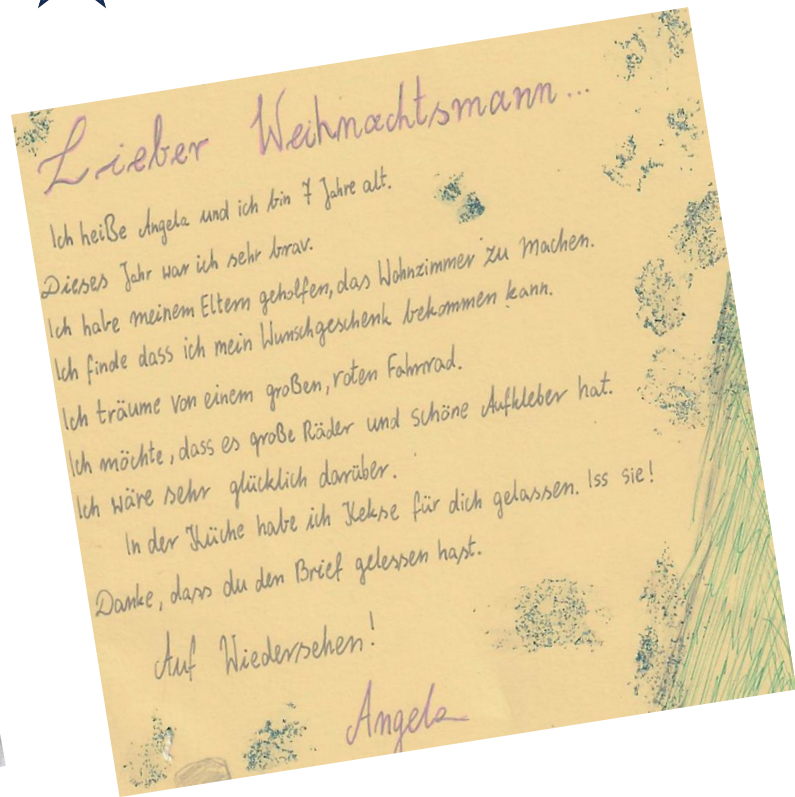 Lieber Weihnachtsmann...
Ich heiße Angela und ich bin 7 Jahre alt.
Dieses Jahr war ich sehr brav.
Ich habe meinem Eltern geholfen, das Wohnzimmer zu machen.
Ich finde dass ich mein Wunschgeschenk bekommen kann.
Ich träume von einem großen, roten Fahrrad.
Ich möchte, dass es große Räder und schöne Aufkleber hat.
Ich wäre sehr glücklich darüber.
In der Küche habe ich Kekse für dich gelassen. Iss sie!
Danke, dass du den Brief gelessen hast.
Auf Wiedersehen!
Angela